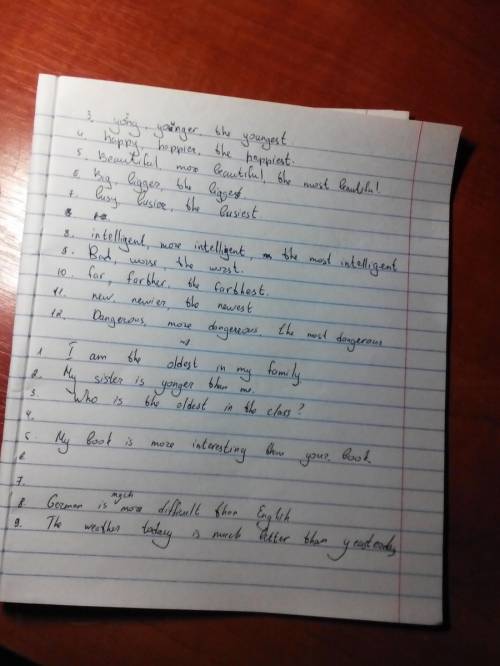 3. yong, younger, the youngest
4. happy, happier, the happiest.
5. Beautiful, more beautiful, the most beautiful
6. Big, bigger, the biggest
7. busy, busier, the busiest
8.
8. intelligent, more intelligent, the most intelligent
9. Bad, worse, the worst.
10. far, farther, the farthest.
11. new, newer, the newest
12. Dangerous, more dangereous, the most dangerous
1. I am the oldest in my family
2. My sister is yonger than me.
3. Who is the oldest in the class?
4.
5. My book is more interesting than your book.
6.
7.
8. German is much more difficult than English
9. The weather today is much better than yeasterday